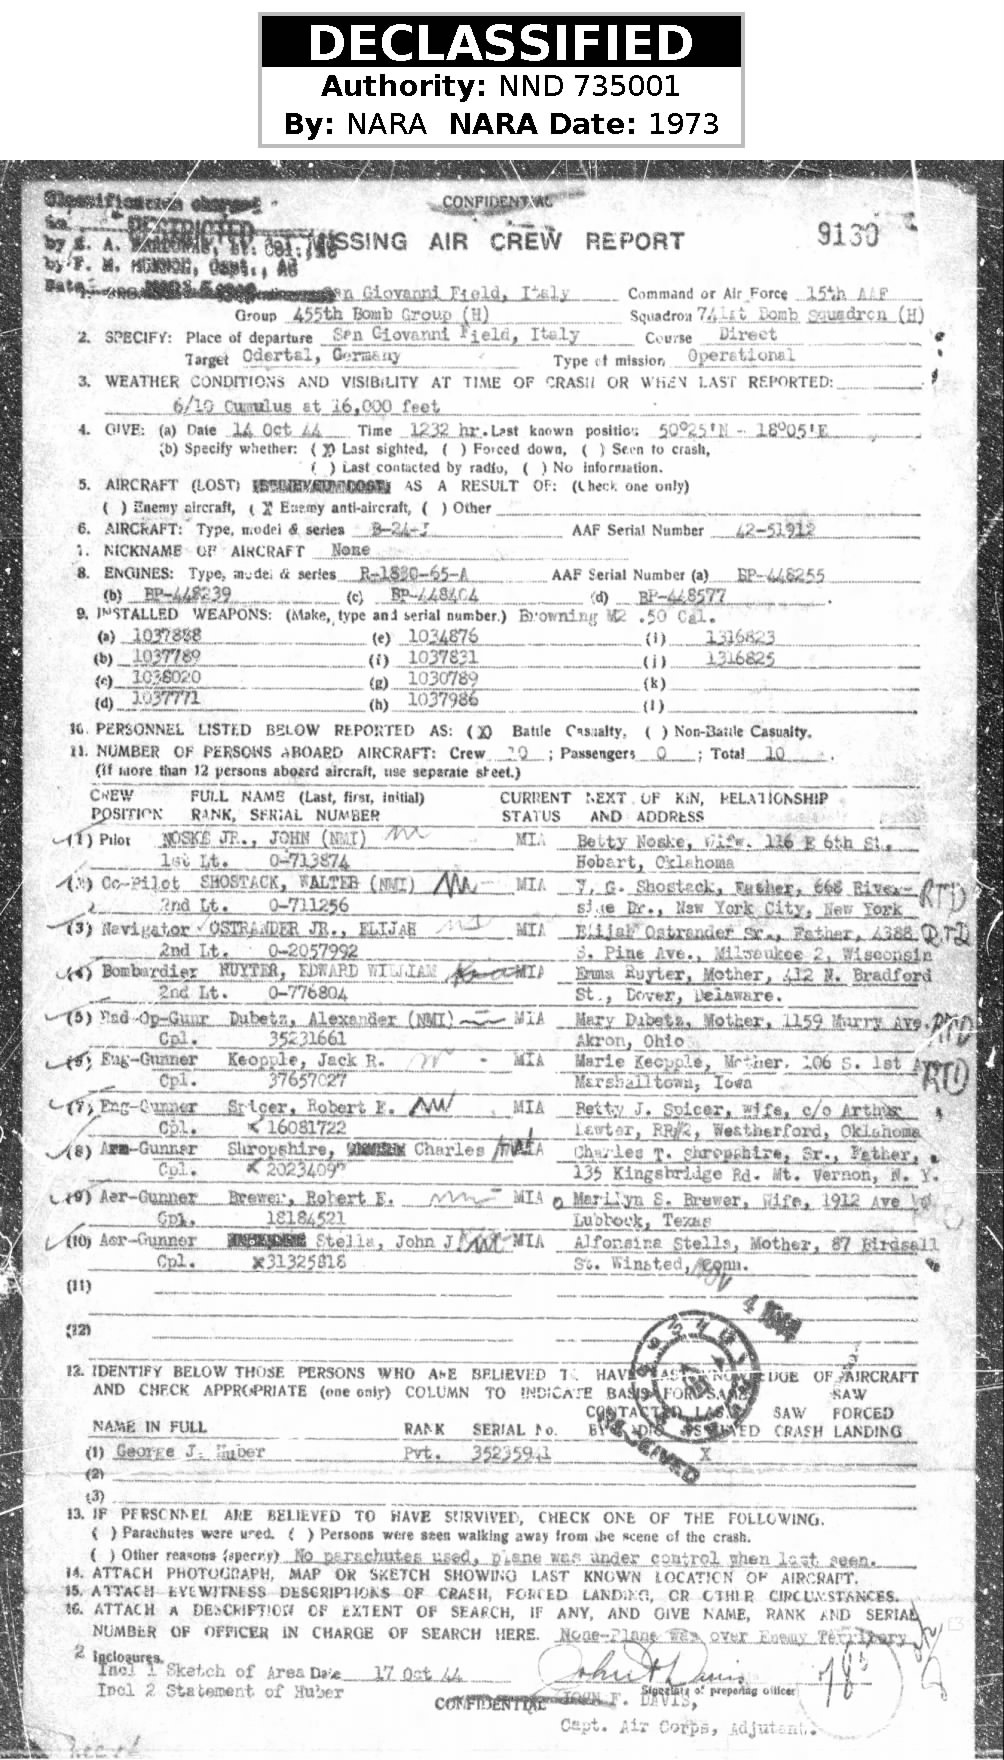 DECLASSIFIED
Authority: NND 735001
By: NARA NARA Date: 1973
Classification changed
CONFIDENTIAL
to RESTRICTED
SSING AIR CREW REPORT 9130
by E. A. Lt. Col., AC
by F. M. Capt., AC
Date
San Giovanni Field, Italy Command or Air Force 15th AAF
Group 455th Bomb Group (H) Squadron 741st Bomb Squadron (H)
2. SPECIFY: Place of departure San Giovanni Field, Italy Course Direct
Target Odertal, Germany Type of mission, Operational
3. WEATHER CONDITIONS AND VISIBILITY AT TIME OF CRASH OR WHEN LAST REPORTED:
6/10 Cumulus at 16,000 feet
4. GIVE: (a) Date 14 Oct 44 Time 1232 hr. Last known position 50°25'N - 18°05'E
(b) Specify whether: (X) Last sighted, ( ) Forced down, ( ) Seen to crash,
( ) Last contacted by radio, ( ) No information.
5. AIRCRAFT (LOST) AS A RESULT OF: (Check one only)
( ) Enemy aircraft, (X Enemy anti-aircraft, ( ) Other
6. AIRCRAFT: Type, model & series B-24-J AAF Serial Number 42-51912
7. NICKNAME OF AIRCRAFT None
8. ENGINES: Type, model & series R-1830-65-A AAF Serial Number (a) BP-448255
(b) BP-448239 (c) BP-448404 (d) BP-448577
9. INSTALLED WEAPONS: (Make, type and serial number.) Browning M2 .50 Cal.
(a) 1037888 (e) 1034876 (i) 1316823
(b) 1037789 (f) 1037831 (j) 1316825
(c) 1038020 (g) 1030789 (k)
(d) 1037771 (h) 1037986 (l)
10. PERSONNEL LISTED BELOW REPORTED AS: (X) Battle Casualty, ( ) Non-Battle Casualty.
11. NUMBER OF PERSONS ABOARD AIRCRAFT: Crew 10 ; Passengers 0 ; Total 10 .
(if more than 12 persons aboard aircraft, use separate sheet.)
CREW FULL NAME (Last, first, initial) CURRENT NEXT OF KIN, RELATIONSHIP
POSITION RANK, SERIAL NUMBER STATUS AND ADDRESS
(1) Pilot NOSKE JR., JOHN (NMI) MIA Betty Noske, Wife. 116 E 6th St.,
1st Lt. O-713874 Hobart, Oklahoma
(2) Co-Pilot SHOSTACK, WALTER (NMI) MIA Y. G. Shostack, Father, 668 River- RTD
2nd Lt. O-711256 side Dr., New York City, New York
(3) Navigator OSTRANDER JR., ELIJAH MIA Elijah Ostrander Sr., Father, 4388 RTD
2nd Lt. O-2057992 S. Pine Ave., Milwaukee 2, Wisconsin
(4) Bombardier RUYTER, EDWARD WILLIAM MIA Emma Ruyter, Mother, 412 N. Bradford
2nd Lt. O-776804 St., Dover, Delaware.
(5) Rad-Op-Gunr Dubetz, Alexander (NMI) MIA Mary Dubetz, Mother, 1159 Murry Ave. RTD
Cpl. 35231661 Akron, Ohio
(6) Eng-Gunner Keopple, Jack R. MIA Marie Keopple, Mother. 106 S. 1st A RTD
Cpl. 37657027 Marshalltown, Iowa
(7) Eng-Gunner Spicer, Robert E. MIA Betty J. Spicer, wife, c/o Arthur
Cpl. 16081722 Lawter, RR#2, Weatherford, Oklahoma
(8) Arm-Gunner Shropshire, Charles MIA Charles T. Shropshire, Sr., Father,
Cpl. 20234097 135 Kingsbridge Rd. Mt. Vernon, N. Y.
(9) Aer-Gunner Brewer, Robert E. MIA Marilyn S. Brewer, Wife, 1912 Ave
Cpl. 18184521 Lubbock, Texas
(10) Aer-Gunner Stella, John J MIA Alfonsina Stella, Mother, 87 Birdsall
Cpl. 31325818 St. Winsted, Conn.
(11)
NOV 4 1944
(12)
12. IDENTIFY BELOW THOSE PERSONS WHO ARE BELIEVED TO HAVE LAST KNOWLEDGE OF AIRCRAFT
AND CHECK APPROPRIATE (one only) COLUMN TO INDICATE BASIS FOR SAME: SAW
CONTACTED LAST SAW FORCED
NAME IN FULL RANK SERIAL No. BY RADIO SIGHTED CRASH LANDING
RECEIVED
(1) George J. Huber Pvt. 35235941 X
(2)
(3)
13. IF PERSONNEL ARE BELIEVED TO HAVE SURVIVED, CHECK ONE OF THE FOLLOWING.
( ) Parachutes were used. ( ) Persons were seen walking away from the scene of the crash.
( ) Other reasons (specify) No parachutes used, plane was under control when last seen.
14. ATTACH PHOTOGRAPH, MAP OR SKETCH SHOWING LAST KNOWN LOCATION OF AIRCRAFT.
15. ATTACH EYEWITNESS DESCRIPTIONS OF CRASH, FORCED LANDING, OR OTHER CIRCUMSTANCES.
16. ATTACH A DESCRIPTION OF EXTENT OF SEARCH, IF ANY, AND GIVE NAME, RANK AND SERIAL
NUMBER OF OFFICER IN CHARGE OF SEARCH HERE. None-Plane was over Enemy Territory
2 Inclosures.
Incl 1 Sketch of Area Date 17 Oct 44 John F Davis
Incl 2 Statement of Huber Signature of preparing officer
CONFIDENTIAL JOHN F. DAVIS,
Capt. Air Corps, Adjutant.